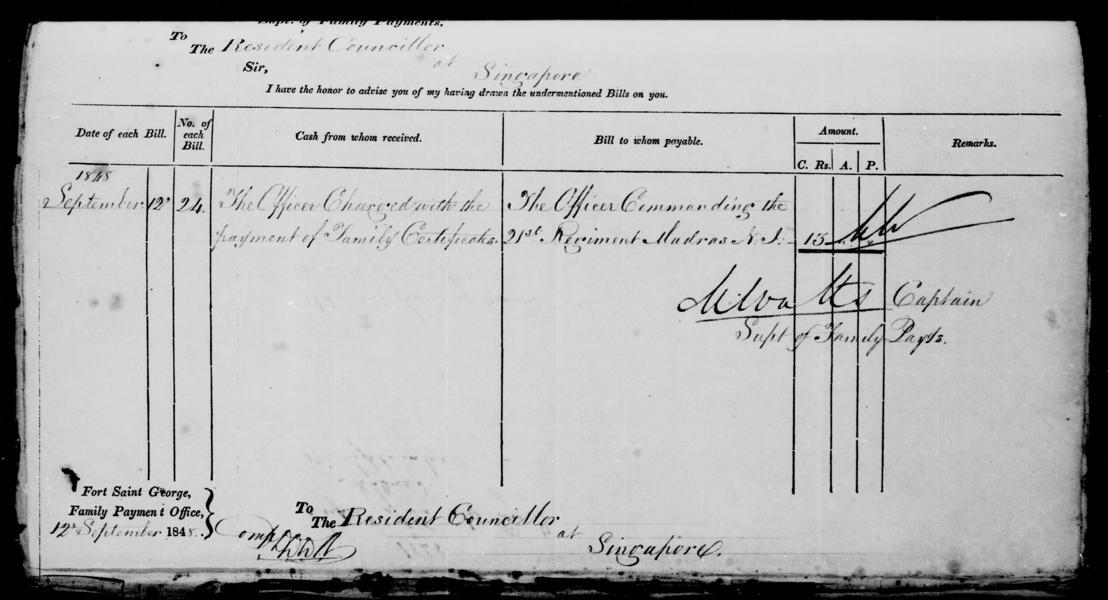 Supt. of Family Payments.
To
The Resident Councillor
at
Sir,
Singapore
I have the honor to advise you of my having drawn the undermentioned Bills on you.
Date of each Bill.
No. of each Bill.
Cash from whom received.
Bill to whom payable.
Amount.
C. Rs. A. P.
Remarks.
1848
September 12th 24. The Officer Charged with the The Officer Commanding the
payment of Family Certificates. 21st Regiment Madras N. I. 15
Captain
Supt of Family Payts.
Fort Saint George,
Family Payment Office,
12th September 1848.
To
The Resident Councillor
at
Singapore.